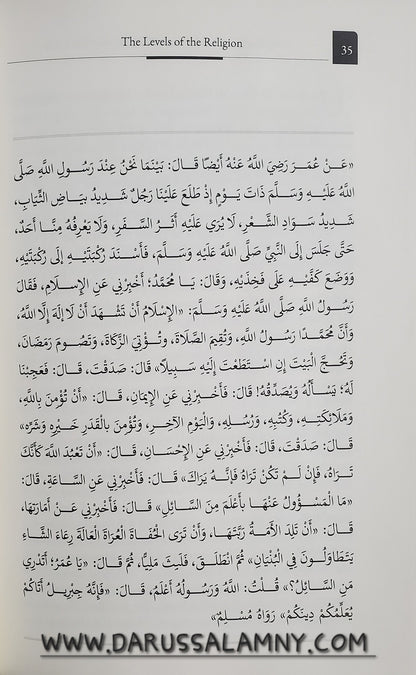 The Levels of the Religion
35
«عَنْ عُمَرَ رَضِيَ اللَّهُ عَنْهُ أَيْضًا قَالَ: بَيْنَمَا نَحْنُ عِنْدَ رَسُولِ اللَّهِ صَلَّى
اللَّهُ عَلَيْهِ وَسَلَّمَ ذَاتَ يَوْمٍ إِذْ طَلَعَ عَلَيْنَا رَجُلٌ شَدِيدُ بَيَاضِ الثِّيَابِ،
شَدِيدُ سَوَادِ الشَّعْرِ، لَا يُرَى عَلَيْهِ أَثَرُ السَّفَرِ، وَلَا يَعْرِفُهُ مِنَّا أَحَدٌ،
حَتَّى جَلَسَ إِلَى النَّبِيِّ صَلَّى اللَّهُ عَلَيْهِ وَسَلَّمَ، فَأَسْنَدَ رُكْبَتَيْهِ إِلَى رُكْبَتَيْهِ،
وَوَضَعَ كَفَّيْهِ عَلَى فَخِذَيْهِ، وَقَالَ: يَا مُحَمَّدُ؛ أَخْبِرْنِي عَنِ الإِسْلَامِ، فَقَالَ
رَسُولُ اللَّهِ صَلَّى اللَّهُ عَلَيْهِ وَسَلَّمَ: «الإِسْلَامُ أَنْ تَشْهَدَ أَنْ لَا إِلَهَ إِلَّا اللَّهُ،
وَأَنَّ مُحَمَّدًا رَسُولُ اللَّهِ، وَتُقِيمَ الصَّلَاةَ، وَتُؤْتِيَ الزَّكَاةَ، وَتَصُومَ رَمَضَانَ،
وَتَحُجَّ الْبَيْتَ إِنِ اسْتَطَعْتَ إِلَيْهِ سَبِيلًا» قَالَ: صَدَقْتَ، قَالَ: فَعَجِبْنَا
لَهُ؛ يَسْأَلُهُ وَيُصَدِّقُهُ! قَالَ: فَأَخْبِرْنِي عَنِ الإِيمَانِ، قَالَ: «أَنْ تُؤْمِنَ بِاللَّهِ،
وَمَلَائِكَتِهِ، وَكُتُبِهِ، وَرُسُلِهِ، وَالْيَوْمِ الآخِرِ، وَتُؤْمِنَ بِالْقَدَرِ خَيْرِهِ وَشَرِّهِ»
قَالَ: صَدَقْتَ، قَالَ: فَأَخْبِرْنِي عَنِ الإِحْسَانِ، قَالَ: «أَنْ تَعْبُدَ اللَّهَ كَأَنَّكَ
تَرَاهُ، فَإِنْ لَمْ تَكُنْ تَرَاهُ فَإِنَّهُ يَرَاكَ» قَالَ: فَأَخْبِرْنِي عَنِ السَّاعَةِ، قَالَ:
«مَا الْمَسْؤُولُ عَنْهَا بِأَعْلَمَ مِنَ السَّائِلِ» قَالَ: فَأَخْبِرْنِي عَنْ أَمَارَتِهَا،
قَالَ: «أَنْ تَلِدَ الأَمَةُ رَبَّتَهَا، وَأَنْ تَرَى الْحُفَاةَ الْعُرَاةَ الْعَالَةَ رِعَاءَ الشَّاءِ
يَتَطَاوَلُونَ فِي الْبُنْيَانِ» ثُمَّ انْطَلَقَ، فَلَبِثَ مَلِيًّا، ثُمَّ قَالَ: «يَا عُمَرُ؛ أَتَدْرِي
مَنِ السَّائِلُ؟» قُلْتُ: اللَّهُ وَرَسُولُهُ أَعْلَمُ، قَالَ: «فَإِنَّهُ جِبْرِيلُ أَتَاكُمْ
يُعَلِّمُكُمْ دِينَكُمْ» رَوَاهُ مُسْلِمٌ»
WWW.DARUSSALAMNY.COM